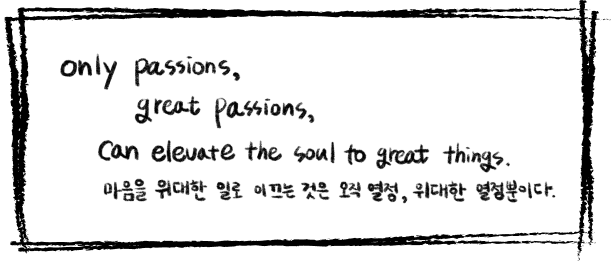 only passions,
great passions,
Can elevate the soul to great things.
마음을 위대한 일로 이끄는 것은 오직 열정, 위대한 열정뿐이다.